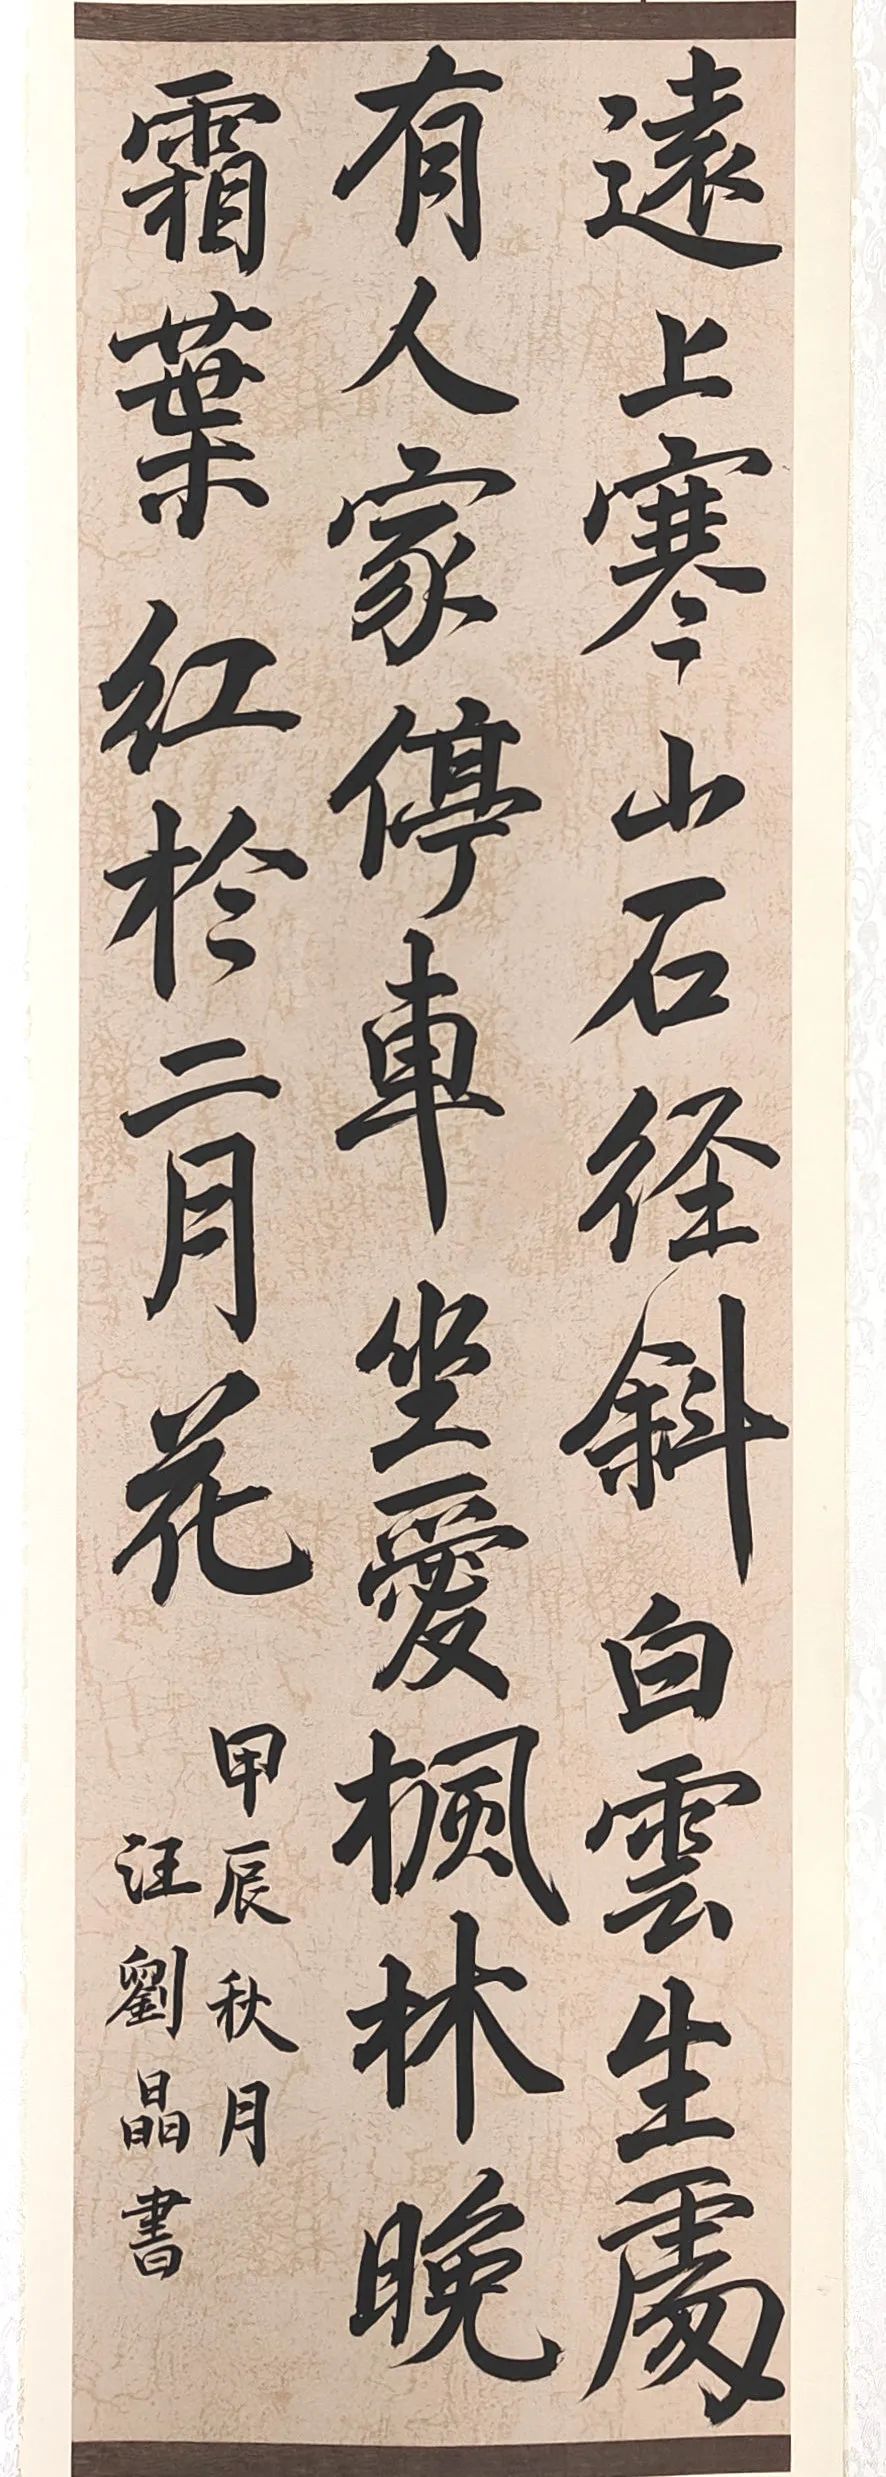 遠上寒山石径斜白雲生處
有人家停車坐愛楓林晚
霜葉紅於二月花
甲辰秋月
汪劉晶書